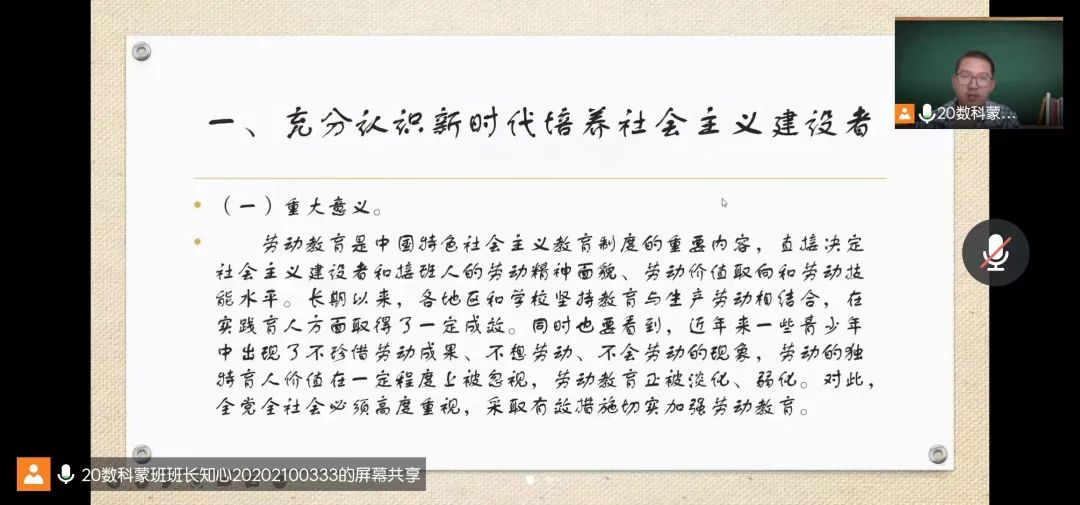 一、充分认识新时代培养社会主义建设者
20数科蒙…
（一）重大意义。
劳动教育是中国特色社会主义教育制度的重要内容，直接决定
社会主义建设者和接班人的劳动精神面貌、劳动价值取向和劳动技
能水平。长期以来，各地区和学校坚持教育与生产劳动相结合，在
实践育人方面取得了一定成效。同时也要看到，近年来一些青少年
中出现了不珍惜劳动成果、不想劳动、不会劳动的现象，劳动的独
特育人价值在一定程度上被忽视，劳动教育正被淡化、弱化。对此，
全党全社会必须高度重视，采取有效措施切实加强劳动教育。
20数科蒙班班长知心20202100333的屏幕共享